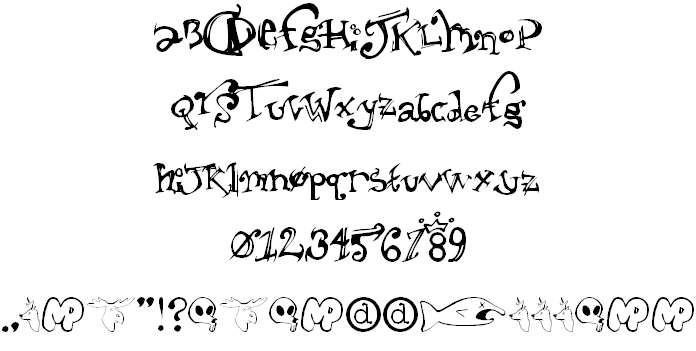 aBCDefgHiJKLmnoP
QrSTuvWxyzabcdefg
hiJKlmnopqrstuvwxyz
0123456789
., MP "!? MP d d MP MP